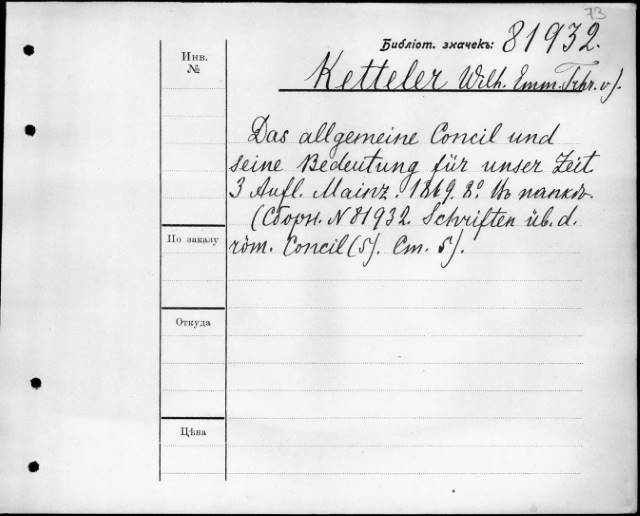 73
Библіот. значекъ: 81932.
Инв. №
Ketteler Wilh. Emm. Frhr. v).
Das allgemeine Concil und
seine Bedeutung für unser Zeit
3 Aufl. Mainz. 1869. 8º. Въ папкѣ.
(Сборн. N 81932. Schriften üb. d.
По заказу
röm. Concil (5). Cm. 5).
Откуда
Цѣна